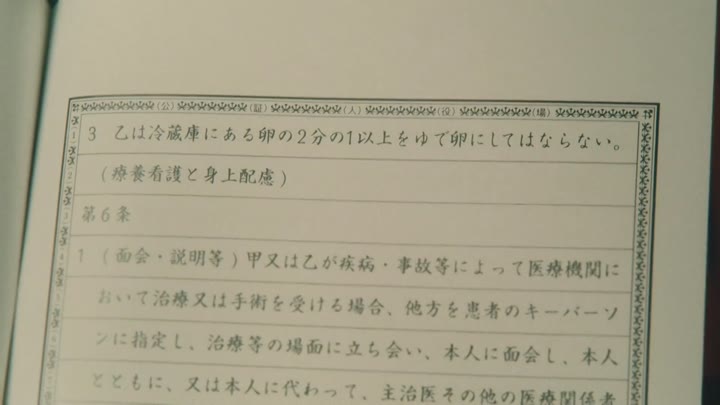 (公) (証) (人) (役) (場)
3 乙は冷蔵庫にある卵の2分の1以上をゆで卵にしてはならない。
(療養看護と身上配慮)
第6条
1 (面会・説明等)甲又は乙が疾病・事故等によって医療機関に
おいて治療又は手術を受ける場合、他方を患者のキーパーソ
ンに指定し、治療等の場面に立ち会い、本人に面会し、本人
とともに、又は本人に代わって、主治医その他の医療関係者